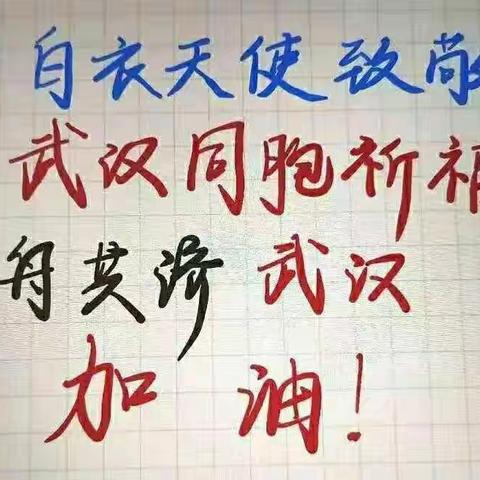 白衣天使致敬
武汉同胞祈福
舟共济 武汉
加油!